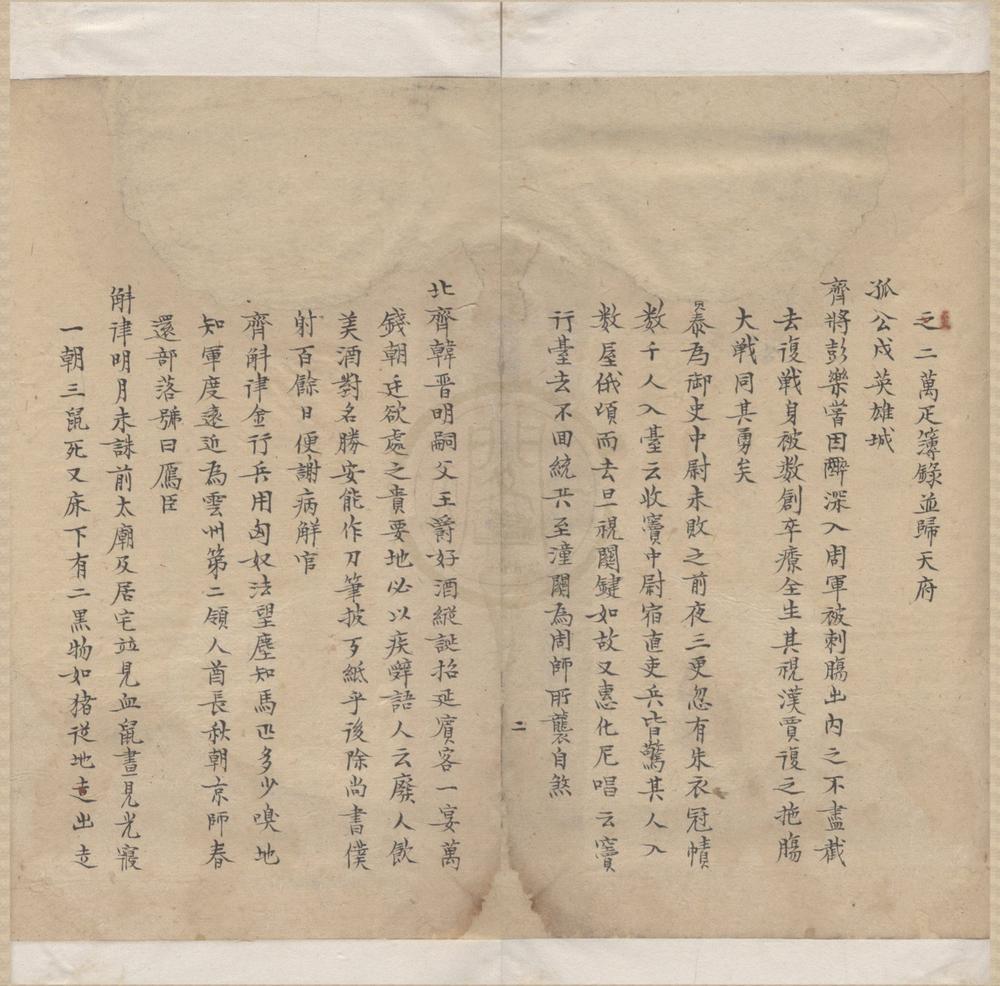 之二萬疋簿錄並歸天府
孤公戍英雄城
齊將彭樂嘗因酔深入周軍被刺膓出內之不盡截
去復戦身被数創卒療全生其視漢賈復之拖膓
大戦同其勇矣
竇泰為御史中尉未敗之前夜三更忽有朱衣冠幘
数千人入臺云收竇中尉宿直吏兵皆驚其人入
数屋俄頃而去旦視関鍵如故又惠化尼唱云竇
行臺去不回統兵至潼関為周師所襲自煞
二
北齊韓晋明嗣父王爵好酒縱誕招延賓客一宴萬
錢朝廷欲處之貴要地必以疾辤語人云廢人飲
美酒對名勝安能作刀筆披故紙乎後除尚書僕
射百餘日便謝病解官
齊斛律金行兵用匈奴法望塵知馬疋多少嗅地
知軍度遠近為雲州第二領人酋長秋朝京師春
還部落號曰鴈臣
斛律明月未誅前太廟及居宅並見血鼠晝見光寢
一朝三鼠死又床下有二黒物如猪從地走出走